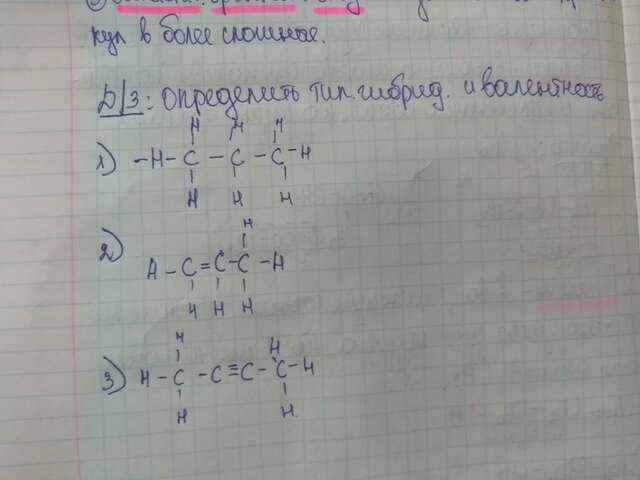 кул в более сложные.
Д/З: определить тип гибрид. и валентность
H H H
1) -H-C-C-C-H
H H H
H
2) H-C=C-C-H
H H H
H H
3) H-C-C≡C-C-H
H H